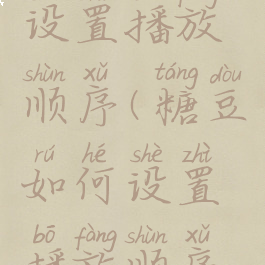 设置播放
shùn xǔ táng dòu
顺序(糖豆
rú hé shè zhì
如何设置
bō fàng shùn xǔ
播放顺序